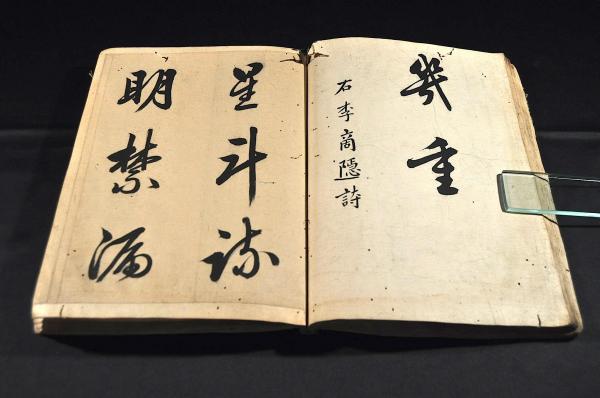 幾重
右李商隱詩
星斗疏
明禁漏